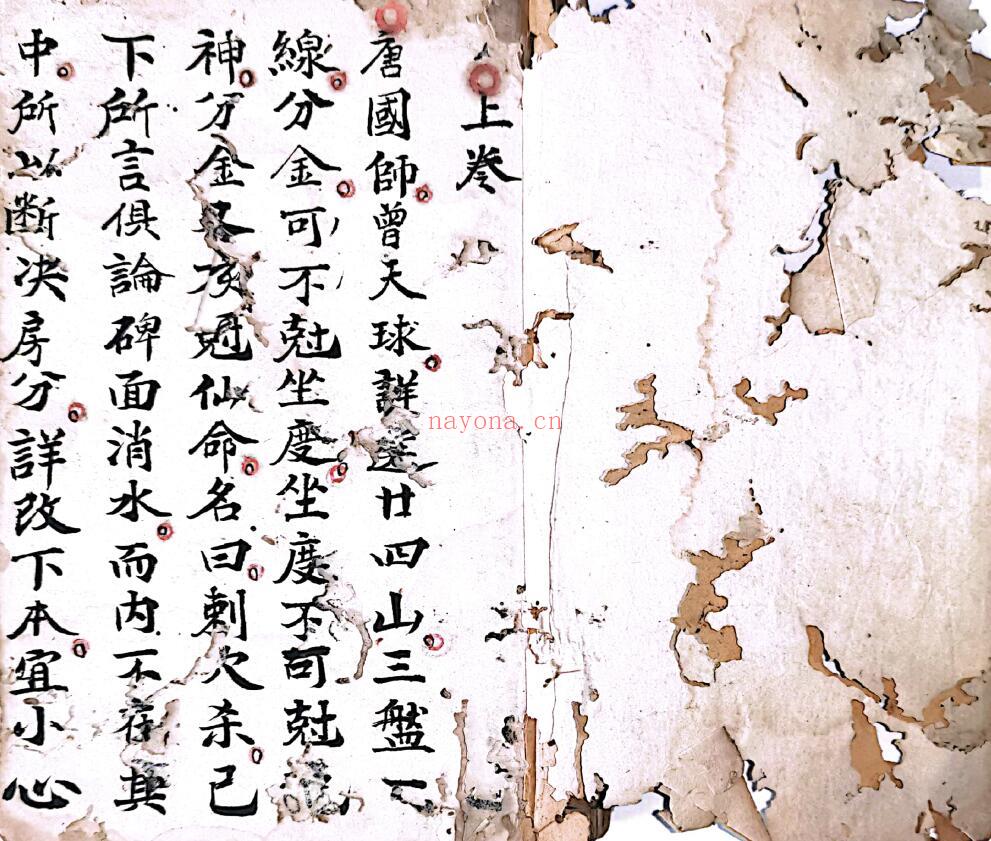 上卷
唐國師曾天球詳選廿四山三盤
線分金可不尅坐度坐度不可尅龍
神分金各亥尅仙命名曰刺穴杀已
下所言俱論碑面消水而內不在其
中所以断决房分詳改下本宜小心
nayona.cn